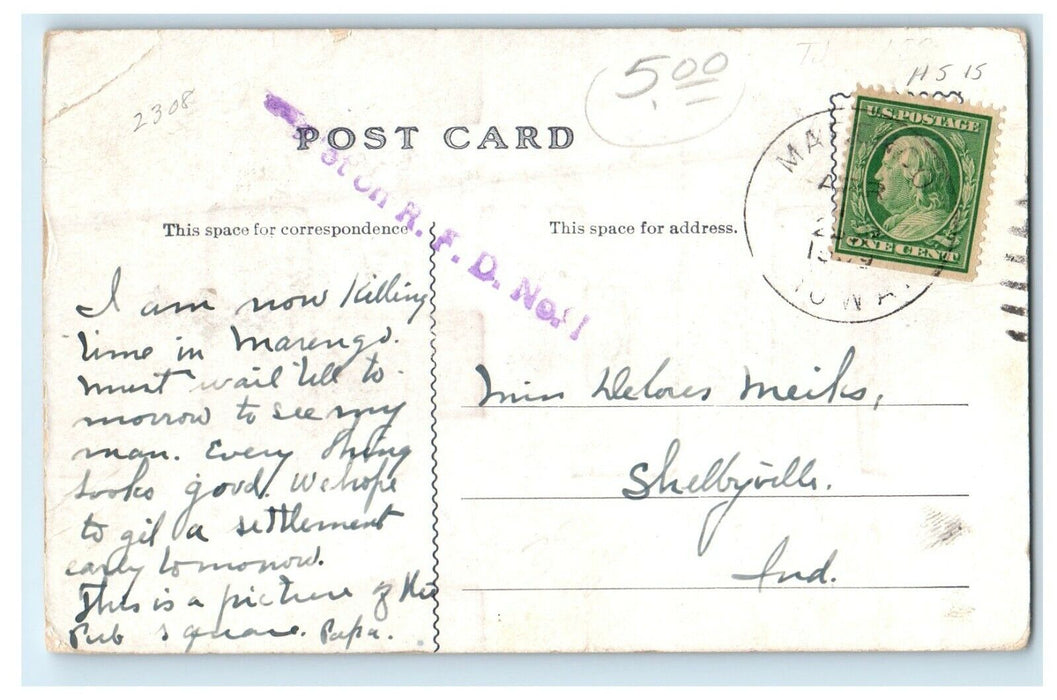 2308
5.00
H 5 15
POST CARD
U.S. POSTAGE
ONE CENT
IOWA
on R. F. D. No. 1
This space for correspondence
This space for address.
I am now Killing
time in Marengo.
must wait till to-
morrow to see my
man. Every thing
looks good. We hope
to get a settlement
early tomorrow.
This is a picture of the
Pub square. Papa.
Miss Delores Meiks,
Shelbyville.
Ind.